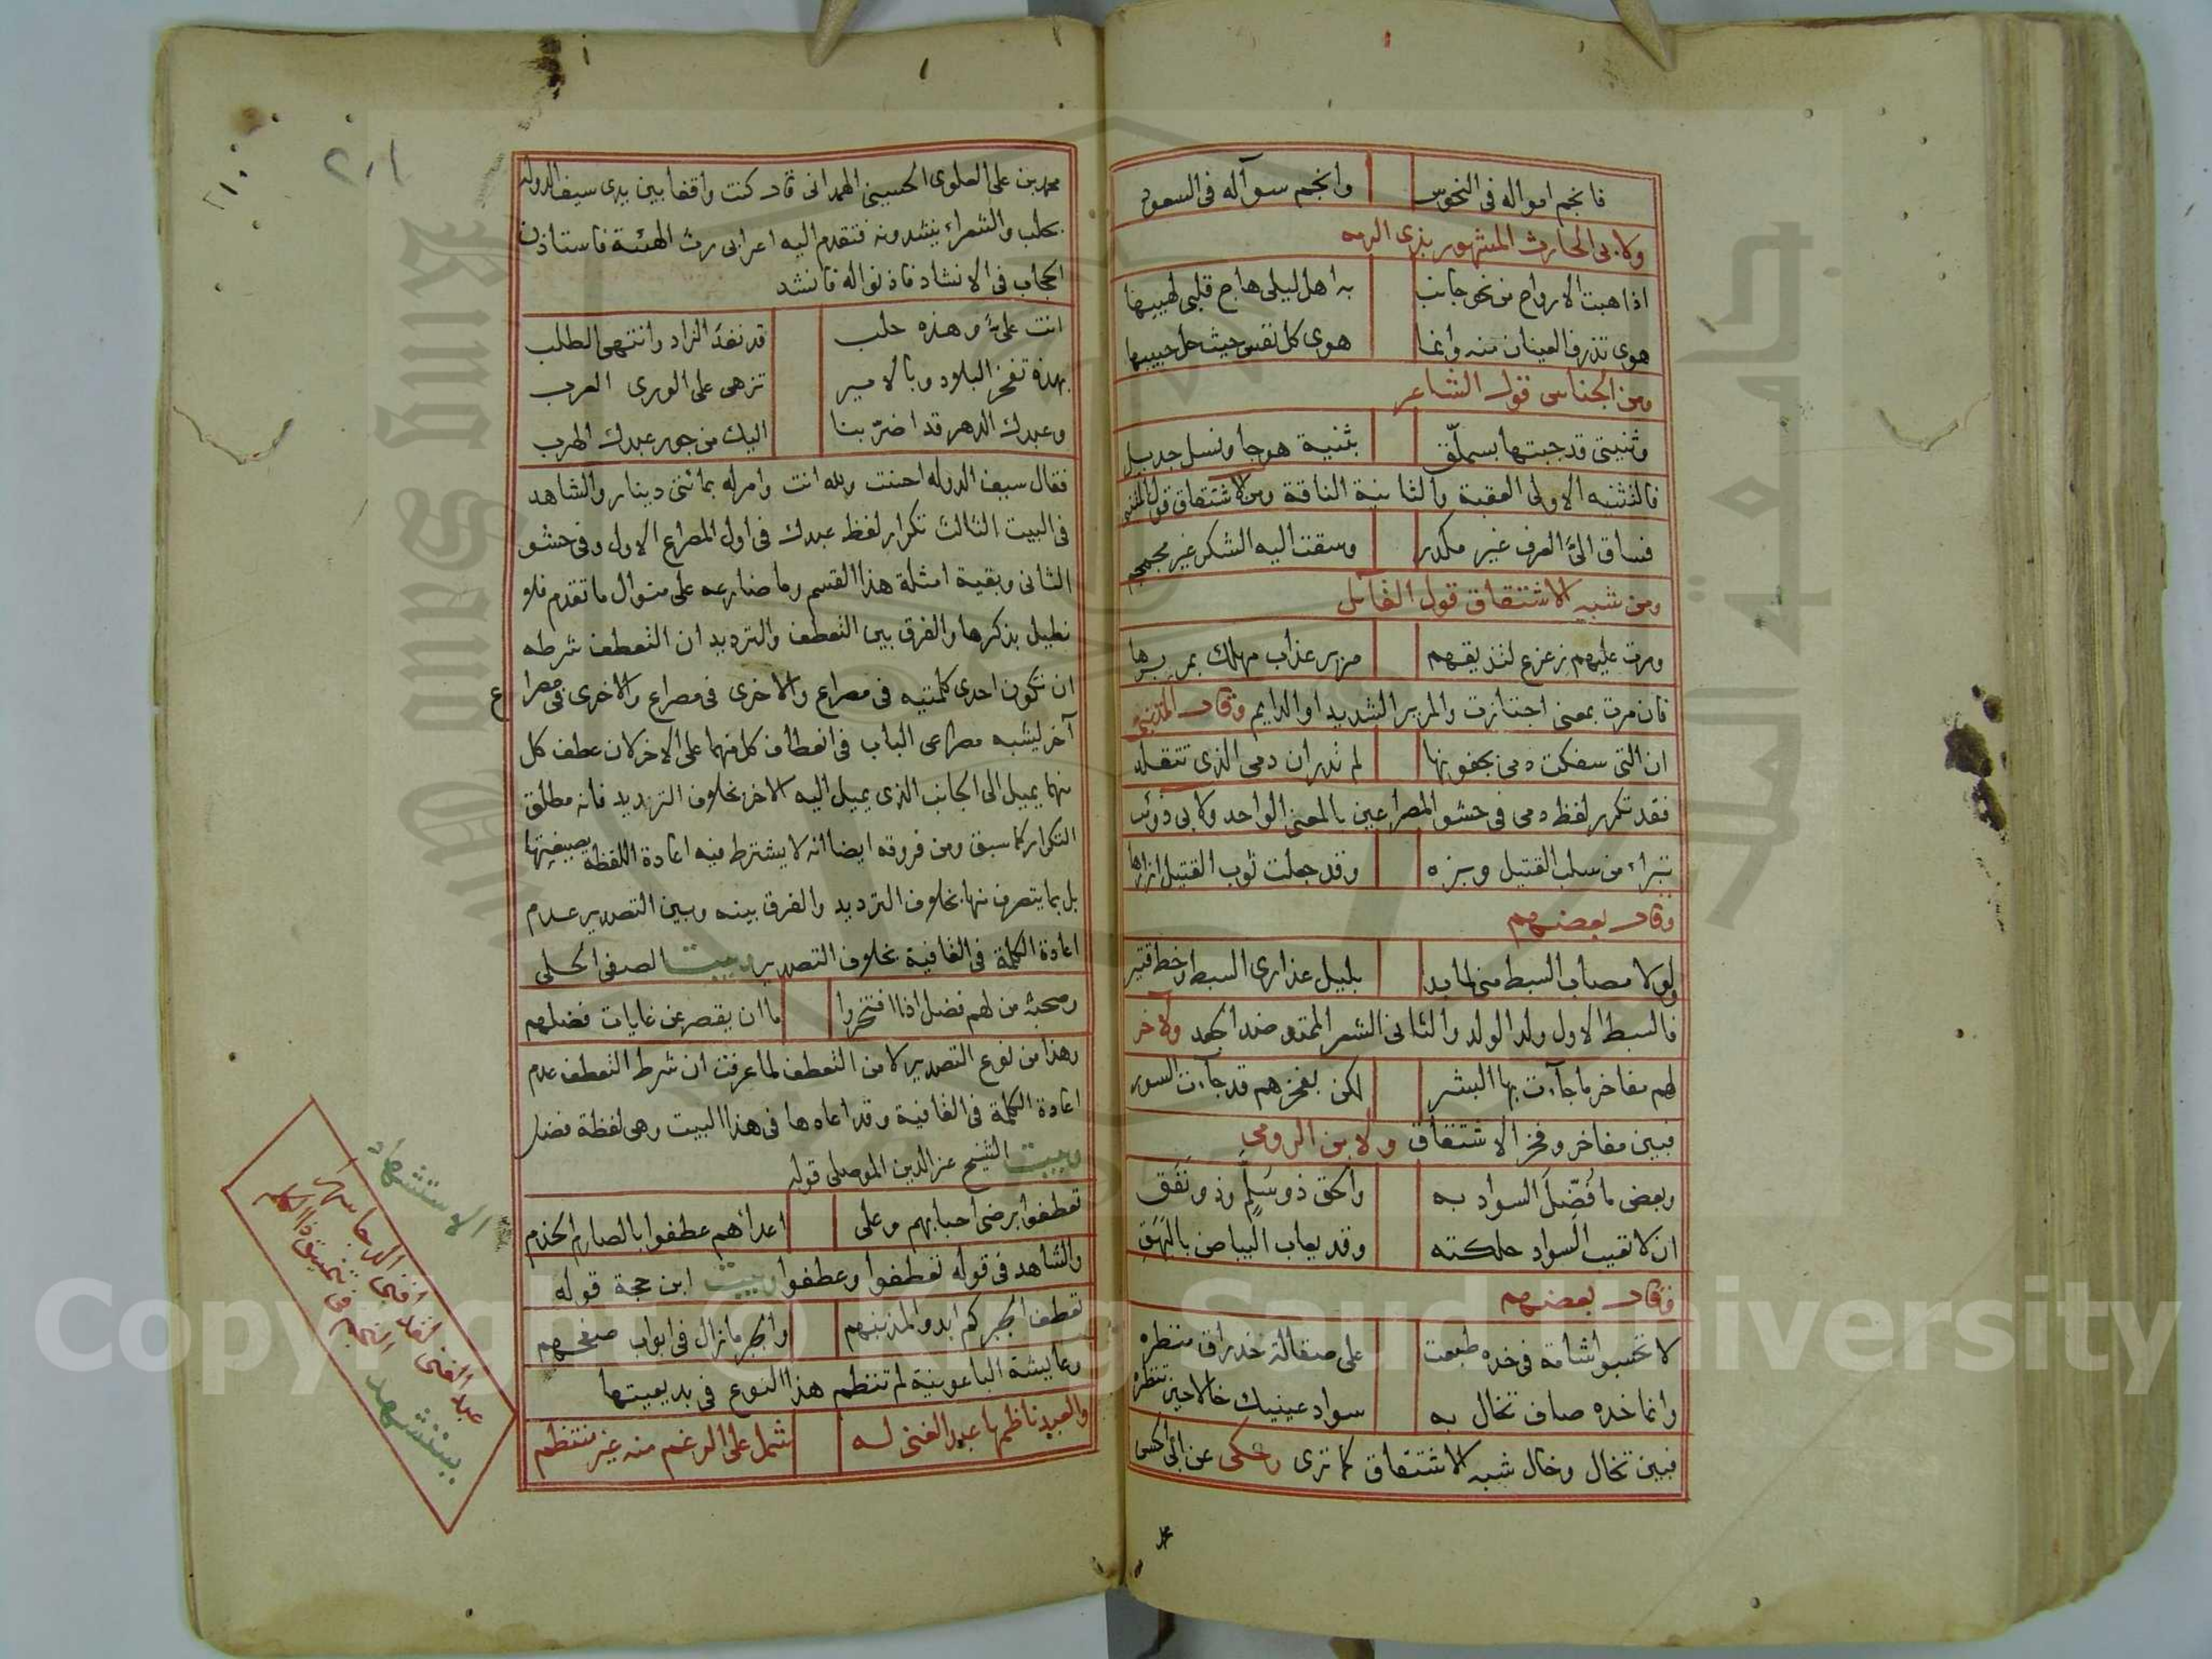 فانجم امواله فى النحوس وانجم سوآله فى السعود
ولابى الحارث المشهور بذى الرمه
اذا هبت الارواح من نحو جانب به اهل ليلى هاج قلبى لهيبها
هوى تذرف العينان منه وانما هوى كل نفس حيث حل حبيبها
ومن الجناس قول الشاعر
وثنيتى قد جبتها بسملّق بثنية هوجا ونسل جديل
فالثنيه الاولى العقبة والثانية الناقة ومن الاشتقاق قول المتنبى
فساق الىَّ العرف غير مكدر وسقت اليه الشكر غير مجمجم
ومن شبه الاشتقاق قول القائل
ومرت عليهم زعزع لتذيقهم مرير عذاب مهلك بمريرها
فان مرت بمعنى اجتازت والمرير الشديد او الدايم وقال المتنبى
ان التى سفكت دمى بجفونها لم تدر ان دمى الذى تتقلد
فقد تكرر لفظ دمى فى حشو المصراعين بالمعنى الواحد ولابى ذؤيب
تبراء من سلب القتيل وبزه وقد جعلت ثوب القتيل ازارها
وقال بعضهم
ولولا مصاب السبط منى لما بدا بليل عذارى السبط وخط قتير
فالسبط الاول ولد الولد والثانى الشعر الممتد ضد الجعد ولاخر
لهم مفاخر ما جآءت بها البشر لكن بفخرهم قد جآءت السور
فبين مفاخر وفخر الاشتقاق ولابن الرومى
وبعض ما فُضّلَ السواد به والحق ذو سُلّمٍ وذو نَفَق
ان لا تعيب السواد حلكته وقد يعاب البياض بالبَهَق
وقال بعضهم
لا تحسبوا شامة فى خده طبعت على صقالة خد راق منظره
وانما خده صاف تخال به سواد عينيك خالا حين تنظره
فبين تخال وخال شبه الاشتقاق كما ترى وحكى عن ابى الحسن
محمد
٢٠١
٢١٠
محمد بن على العلوى الحسينى الهمدانى قال كنت واقفا بين يدى سيف الدولة
بحلب والشعراء ينشدونه فتقدم اليه اعرابى رث الهيئة فاستاذن
الحجاب فى الانشاد فاذنوا له فانشد
انت علىٌّ وهذه حلب قد نفد الزاد وانتهى الطلب
بهذه تفخر البلاد وبالامير تزهى على الورى العرب
وعبدك الدهر قد اضرّ بنا اليك من جور عبدك الهرب
فقال سيف الدوله احسنت ولله انت وامر له بمائتى دينار والشاهد
فى البيت الثالث تكرار لفظ عبدك فى اول المصراع الاول وفى حشو
الثانى وبقية امثلة هذا القسم وما ضارعه على منوال ما تقدم فلا
نطيل بذكرها والفرق بين التعطف والترديد ان التعطف شرطه
ان تكون احدى كلمتيه فى مصراع والاخرى فى مصراع والاخرى فى مصراع
آخر ليشبه مصراعى الباب فى انعطاف كل منهما على الاخر لان عطف كل
منهما يميل الى الجانب الذى يميل اليه الاخر بخلاف الترديد فانه مطلق
التكرار كما سبق ومن فروقه ايضا انه لا يشترط فيه اعادة اللفظة بصيغتها
بل بما يتصرف منها بخلاف الترديد والفرق بينه وبين التصدير عدم
اعادة الكلمة فى القافية بخلاف التصدير وبيت الصفى الحلى
وصحبه من لهم فضل اذا افتخروا ما ان يقصر عن غايات فضلهم
وهذا من نوع التصدير لا من التعطف لما عرفت ان شرط التعطف عدم
اعادة الكلمة فى القافية وقد اعادها فى هذا البيت وهى لفظة فضل
وبيت الشيخ عز الدين الموصلى قوله
تعطفوا برضى احبابهم وعلى اعدائهم عطفوا بالصارم الخذم
والشاهد فى قوله تعطفوا وعطفوا وبيت ابن حجة قوله
تعطف الجبركم ابدوا لمذنبهم والجبر مازال فى ابواب صفحهم
وعايشة الباعونية لم تنظم هذا النوع فى بديعيتها
والعبد ناظمها عبد الغنى له شمل على الرغم منه غير منتظم
الاستشهاد
عبد الغنى لقد افنى الدجا سهرا
يستشهد النجم فى تنميق ذا الكلم